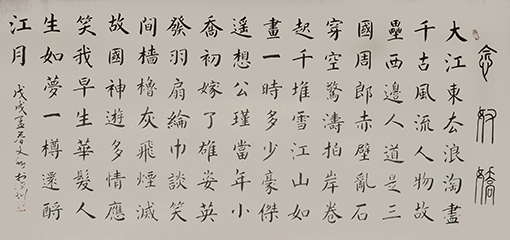 念奴嬌
大江東去浪淘盡
千古風流人物故
壘西邊人道是三
國周郎赤壁亂石
穿空驚濤拍岸卷
起千堆雪江山如
畫一時多少豪傑
遙想公瑾當年小
喬初嫁了雄姿英
發羽扇綸巾談笑
間檣櫓灰飛煙滅
故國神遊多情應
笑我早生華髮人
生如夢一樽還酹
江月
戊戌孟春